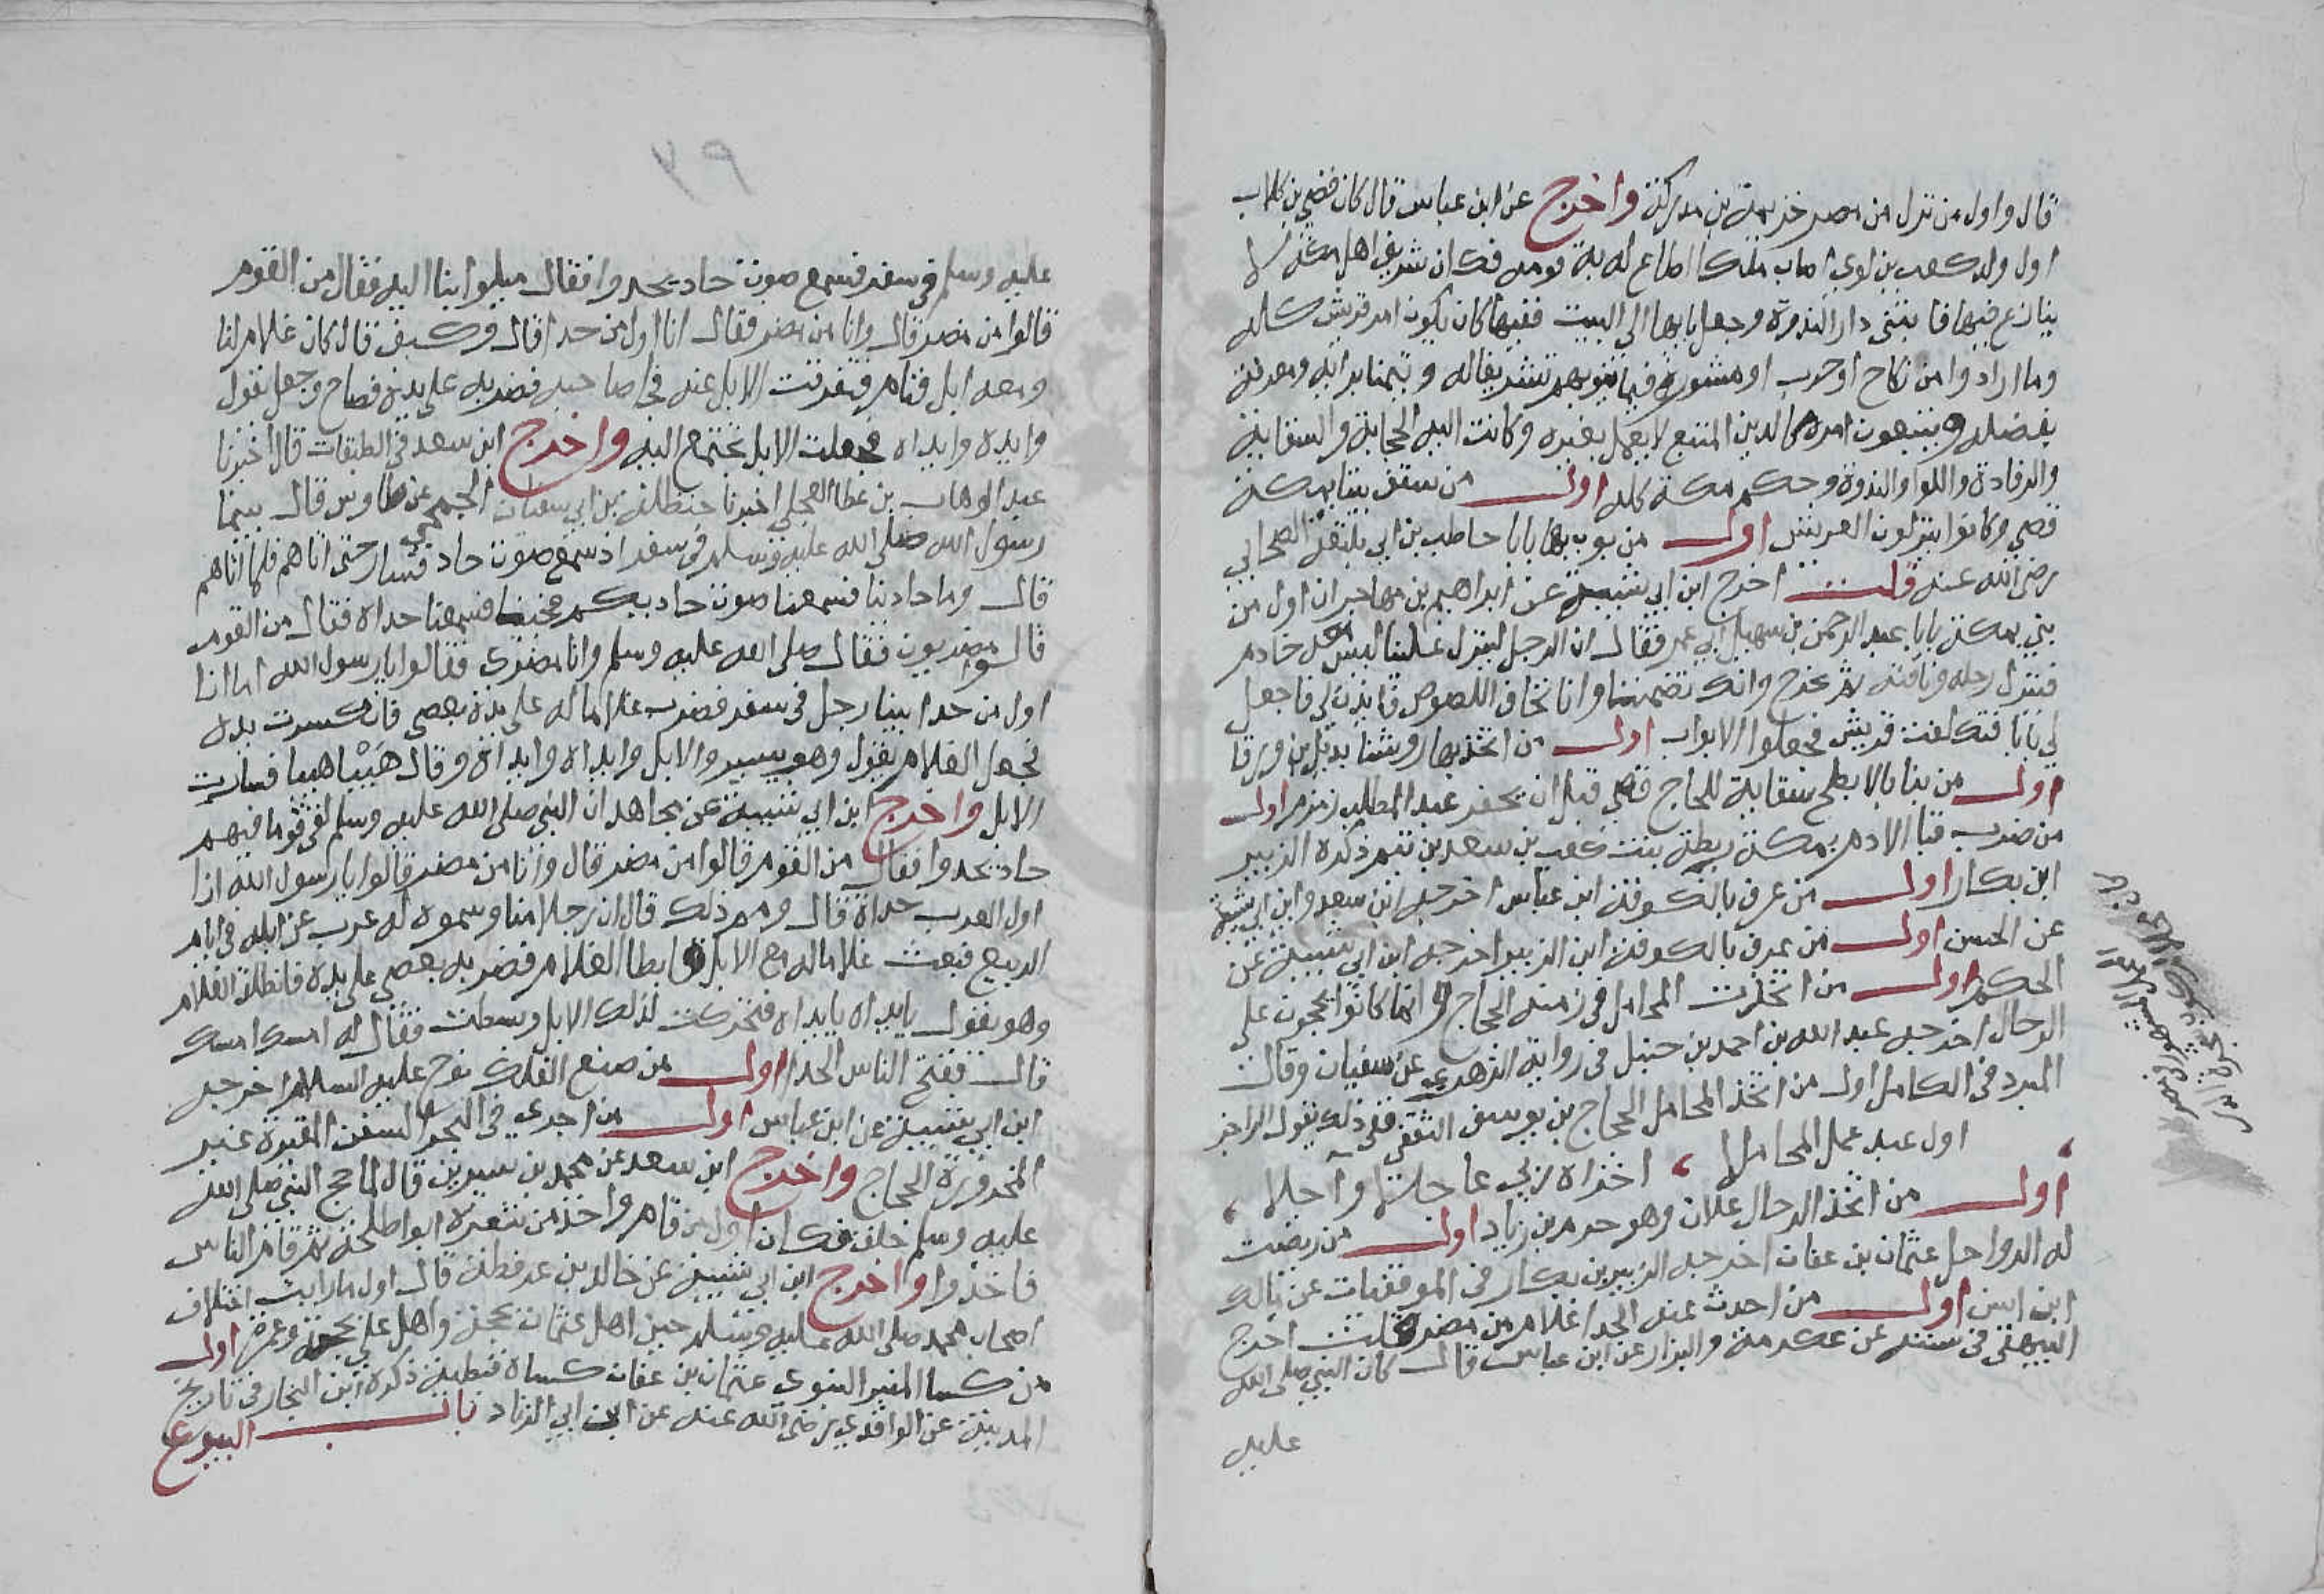 قال واول من نزل من مضر خزيمة بن مدركة واخرج عن ابن عباس قال كان قصي بن كلاب
اول ولد كعب بن لوي اصاب ملكا اطاع له به قومه فكان شريف اهل مكة لا
ينازع فيها فابتنى دار الندوة وجعل بابها الى البيت ففيها كان يكون امر قريش كله
وما ارادوا من نكاح او حرب او مشورة فيما ينوبهم تشريفا له وتيمنا برايه ومعرفة
بفضله ويتبعون امره كالدين المتبع لا يعمل بغيره وكانت اليه الحجابة والسقاية
والرفادة واللوا والندوة وحكم مكة كله اول من سقف بيتا بمكة
قصي وكانوا ينزلون العريش اول من بوب بها بابا حاطب بن ابي بلتعة الصحابي
رضى الله عنه قلت اخرج ابن ابي شيبة عن ابراهيم بن مهاجر ان اول من
بنى بمكة بابا عبد الرحمن بن سهيل ابي عمر فقال ان الرجل لينزل علينا ليس معه خادم
فينزل رحله وناقته ثم يخرج وانك تضمننا وانا نخاف اللصوص فاىذن لي فاجعل
لي بابا فتكلفت قريش فجعلوا الابواب اول من اتخذ بها روشنا بديل بن ورقا
اول من بنا بالابطح سقاية للحاج قصي قبل ان يحفر عبد المطلب زمزم اول
من ضرب قبا الادم بمكة ريطة بنت كعب بن سعد بن تيم ذكره الزبير
ابن بكار اول من عرف بالكوفة ابن عباس اخرجه ابن سعد وابن ابي شيبة
عن الحسن اول من عرف بالكوفة ابن الزبير اخرجه ابن ابي شيبة عن
الحكم اول من اتخذت المحامل في زمنه الحجاج وانما كانوا يحجون على
الرحال اخرجه عبد الله بن احمد بن حنبل في رواية الزهدي عن سفيان وقال
المبرد في الكامل اول من اتخذ المحامل الحجاج بن يوسف الثقفي ففي ذلك يقول الراجز
اول عبد عمل المحاملا ، اخزاه ربي عاجلا وآجلا ،
اول من اتخذ الرحال علان وهو حرم بن زياد اول من ربضت
له الرواحل عثمان بن عفان اخرجه الزبير بن بكار في الموفقيات عن مالك
ابن انس اول من احدث عنه الحدا غلام من مضر قلت اخرج
البيهقى في سننه عن عكرمة والبزار عن ابن عباس قال كان النبي صلى الله
عليه
٩٧
عليه وسلم في سفر فسمع صوت حاد يحدوا فقال ميلوا بنا اليه فقال من القوم
قالوا من مضر قال وانا من مضر فقال انا اول من حدا قال وكيف قال كان غلام لنا
ومعه ابل فنام فتفرقت الابل عنه فجا صاحبه فضربه على يديه فصاح وجعل يقول
وايده وايداه فجعلت الابل تجتمع اليه واخرج ابن سعد في الطبقات قال اخبرنا
عبد الوهاب بن عطا العجلي اخبرنا حنظلة بن ابي سفيان الجمحي عن طاوس قال بينما
رسول الله صلى الله عليه وسلم في سفر اذ سمع صوت حاد فسار حتى اتاهم فلما اتاهم
قال وما حادينا فسمعنا صوت حاديكم فجئنا فسمعنا حداه فقال من القوم
قالوا مضريون فقال صلى الله عليه وسلم وانا مضري فقالوا يا رسول الله اما انا
اول من حدا بينا رجل في سفر فضرب غلاما له على يده بعصى فانكسرت يده
فجعل الغلام يقول وهو يسير والابل وايداه وايداه وقال هَيْبًا هيبا فسارت
الابل واخرج ابن ابي شيبة عن مجاهد ان النبي صلى الله عليه وسلم لقى قوما فيهم
حاد يحدوا فقال من القوم قالوا من مضر قال وانا من مضر قالوا يا رسول الله انا
اول العرب حداة قال ومم ذلك قال ان رجلا منا وسموه له عرب عن ابله في ايام
الربيع فبعث غلاما له مع الابل فابطا الغلام فضربه بعصي على يده فانطلق الغلام
وهو يقول يايداه يايداه فتحركت لذلك الابل وسطت فقال له امسك امسك
قال ففتح الناس الحدا اول من صنع الفلك نوح عليه السلام اخرجه
ابن ابي شيبة عن ابن عباس اول من اجرى في البحر السفن المقيرة غير
المخرورة الحجاج واخرج ابن سعد عن محمد بن سيرين قال لما حج النبي صلى الله
عليه وسلم خلق فكان اول من قام واخذ من شعره ابو اطلحة ثم قام الناس
فاخذوا واخرج ابن ابي شيبة عن خالد بن عرفطة قال اول ما رايت اختلاف
اصحاب محمد صلى الله عليه وسلم حين اهل عثمان بحجة واهل على بحجة وعمرة اول
من كسا المنبر النبوى عثمان بن عفان كساه قبطية ذكره ابن النجار في تاريخ
المدينة عن الواقدي رضى الله عنه عن ابن ابي الزناد باب البيوع